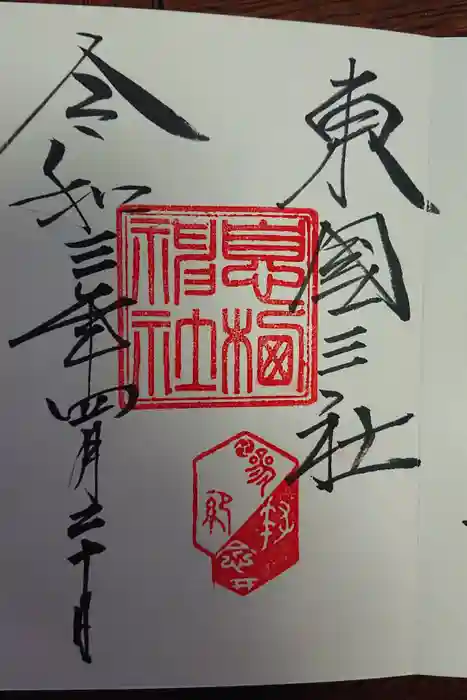 東國三社
息栖
神社
参拝
令和三年四月二十日